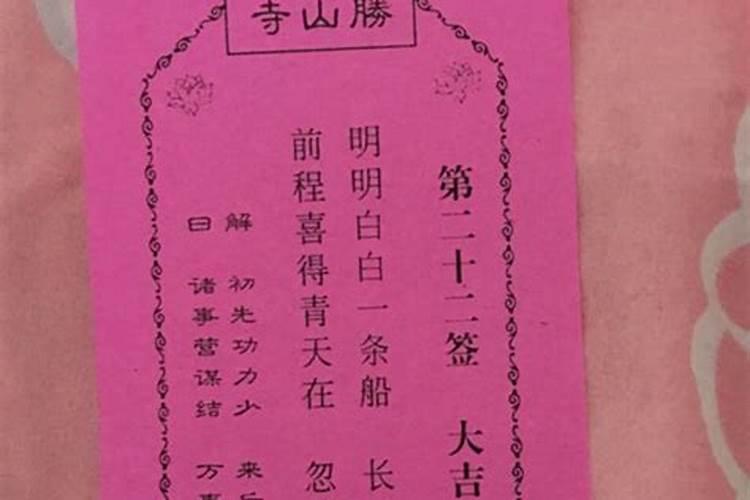 勝山寺
第二十二签 大吉
明明白白一条船 长
前程喜得青天在 忽
解曰
初先功力少 来
诸事营谋结 万